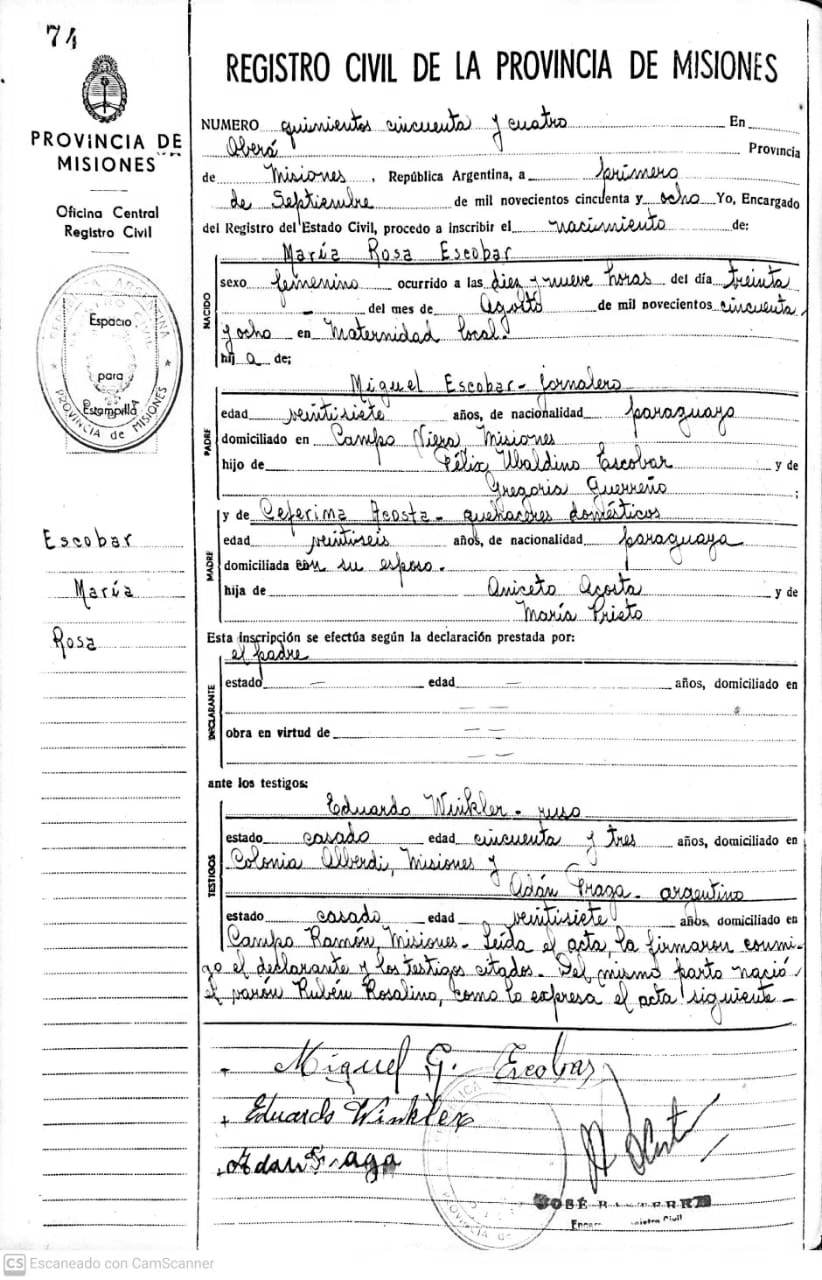 74
PROVINCIA DE
MISIONES
Oficina Central
Registro Civil
REPUBLICA ARGENTINA
REGISTRO CIVIL
PROVINCIA de MISIONES
Espacio
para
Estampilla
Escobar
María
Rosa
REGISTRO CIVIL DE LA PROVINCIA DE MISIONES
NUMERO quinientos cincuenta y cuatro En
Oberá Provincia
de Misiones, República Argentina, a primero
de Septiembre de mil novecientos cincuenta y ocho Yo, Encargado
del Registro del Estado Civil, procedo a inscribir el nacimiento de:
NACIDO
María Rosa Escobar
sexo femenino ocurrido a las diez y nueve horas del día treinta
del mes de Agosto de mil novecientos cincuenta
y ocho en Maternidad local.
hija de;
PADRE
Miguel Escobar - jornalero
edad veintisiete años, de nacionalidad paraguayo
domiciliado en Campo Viera, Misiones
hijo de Félix Ubaldino Escobar y de
Gregoria Guerreño ;
MADRE
y de Ceferina Acosta - quehaceres domésticos
edad veintiseis años, de nacionalidad paraguaya
domiciliada con su esposo.
hija de Aniceto Acosta y de
María Prieto
Esta inscripción se efectúa según la declaración prestada por:
DECLARANTE
el padre
estado — edad — años, domiciliado en
— —
obra en virtud de — —
— —
ante los testigos:
TESTIGOS
Eduardo Winkler - ruso
estado casado edad cincuenta y tres años, domiciliado en
Colonia Alberdi, Misiones y
Adán Fraga - argentino
estado casado edad veintisiete años, domiciliado en
Campo Ramón, Misiones - Leída el acta, la firmaron conmi-
go el declarante y los testigos citados. Del mismo parto nació
el varón Rubén Rosalino, como lo expresa el acta siguiente -
Miguel G. Escobar
Eduardo Winkler
Adan Fraga
JOSÉ
PROVINCIA de
CS Escaneado con CamScanner